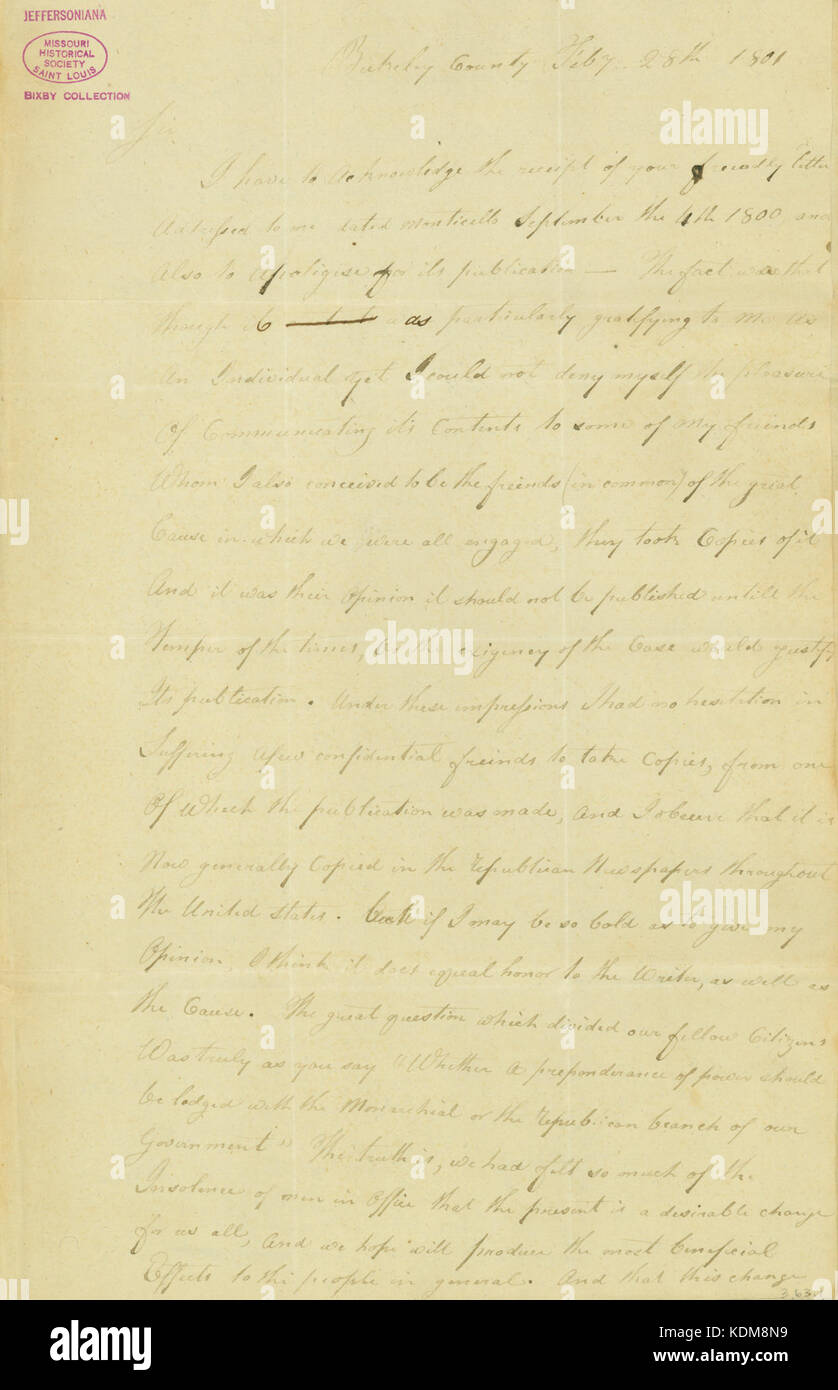 JEFFERSONIANA
MISSOURI
HISTORICAL
SOCIETY
SAINT LOUIS
BIXBY COLLECTION
Berkeley County Feby 28th 1801
Sir
I have to Acknowledge the receipt of your freindly letter
Adressed to me dated Monticello September the 4th 1800 and
Also to Apoligise for its publication — The fact was that
though it was particularly gratifying to Me as
An Individual yet I could not deny myself the pleasure
Of Communicating its Contents to some of My freinds
Whom I also conceived to be the freinds (in common) of the great
Cause in which we were all engaged, they took Copies of it
And it was their Opinion it should not be published untill the
Temper of the times, or the exigency of the Case would justify
Its publication. Under these impressions I had no hesitition in
Suffering a few confidential freinds to take Copies, from one
Of which the publication was made, And I observe that it is
Now generally Copied in the Republican Newspapers throughout
The United States. But if I may be so bold as to give my
Opinion, I think it does equal honor to the Writer, as well as
the Cause. The great question which divided our fellow Citizens
Was truly as you say "Whether a preponderance of power should
be lodged with the Monarchial or the Republican branch of our
Government" The truth is, we had felt so much of the
Insolence of men in Office that the present is a desirable change
for us all, And we hope will produce the most beneficial
Effects to the people in general. And that this change
alamy
Image ID: KDM8N9
www.alamy.com